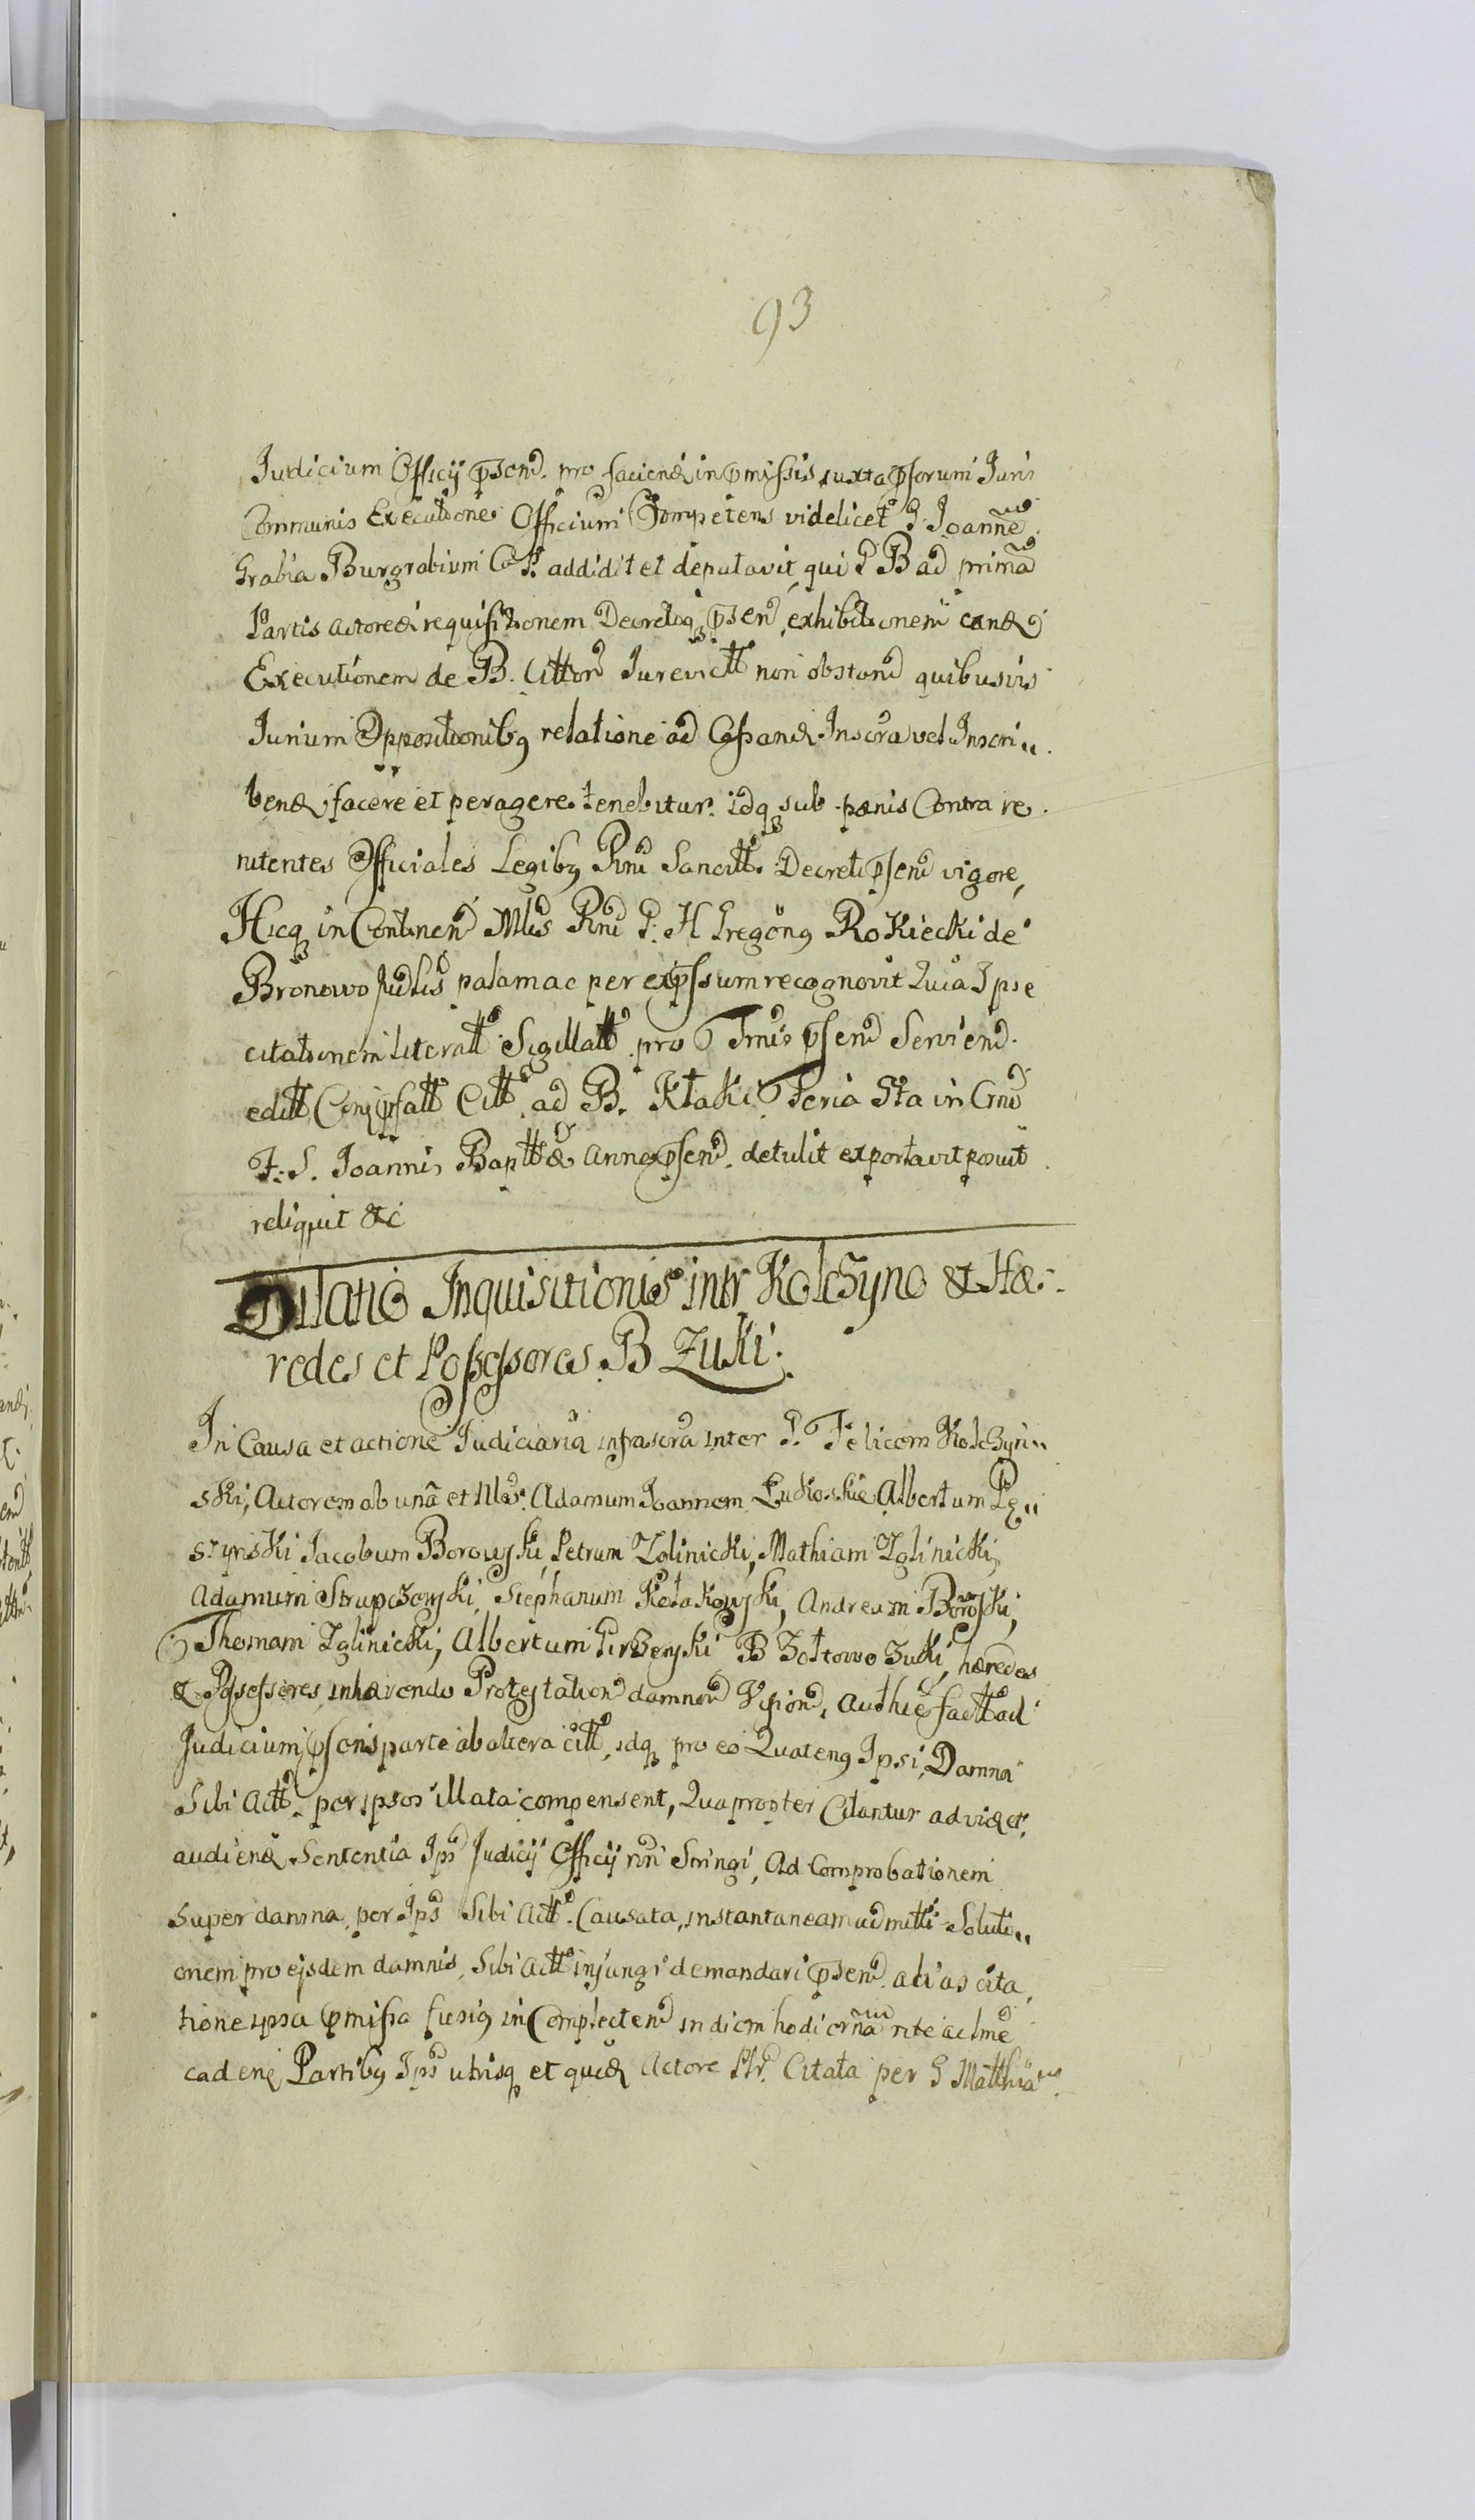 93
Judicium Officij psend. pro faciend in pmissis juxta psorum Juris
Communis Executione Officium Competens videlicet G. Joannẽ
Grabia Burgrabium C. P. addidit et deputavit, qui G B ad primã
Partis actoreæ requisitionem Decretoq psen exhibitionem eand
Executionem de B. Citton Jurevictt non obstand quibusvis
Jurium Oppositionibq relatione ad Cassand Inscra vel Inscri„
bend facere et peragere tenebitur. idq sub pænis Contra re
nitentes Officiales Legibq Rni Sancitt. Decreti psend vigore,
Hicq in Continen Mlis Rni G. H Gregorig Rokiecki de
Bronowo Judlis palam ac per expssum recognovit Quia Ipse
citationem literatt Sigillatt pro Tmis psend Serviend.
editt Conj psatt Citt ad B. Ktaki Feria 5ta in Crno
F. S. Joannis Baptt & anno psend. detulit exportavit posuit
reliquit &c
Dilatio Inquisitionis intr Kolczyno & Hæ-
redes et Possessores B Zuki.
In Causa et actione Judiciaria infrascra inter G. Felicem Kolczyn„
ski, Actorem ab unâ et Mlos Adamum Joannem Lukoskie Albertum Pę„
szynski Jacobum Borowski, Petrum Zglinicki, Mathiam Zglinicki,
Adamum Strupczowski, Stephanum Kołakowski, Andream Boroski,
Thomam Zglinicki, Albertum Girzenski B Zołtowo Zuki, hæredes
& Possessores, inhærendo Protestation damnor Vision, authee factt ad
Judicium psens parte ab altera citt, idq pro eo Quateng Ipsi, Damna
Sibi Actt. per ipsos illata compensent, Quapropter Citantur ad vid et
audiend Sententia Ips Judicij Officij nri Stringi, Ad Comprobationem
super damna, per Ips Sibi Actt. Causata, instantaneam admitti Soluti„
onem pro ejsdem damnis, Sibi Actt injungi demandari psend. alias cita,
tione ipsa pmissa fusig in Complecten in diem hodiernã rite ac lmẽ
cadend Partibq Ips utrisq et quid Actore Ptr. Citata per G Matthiã